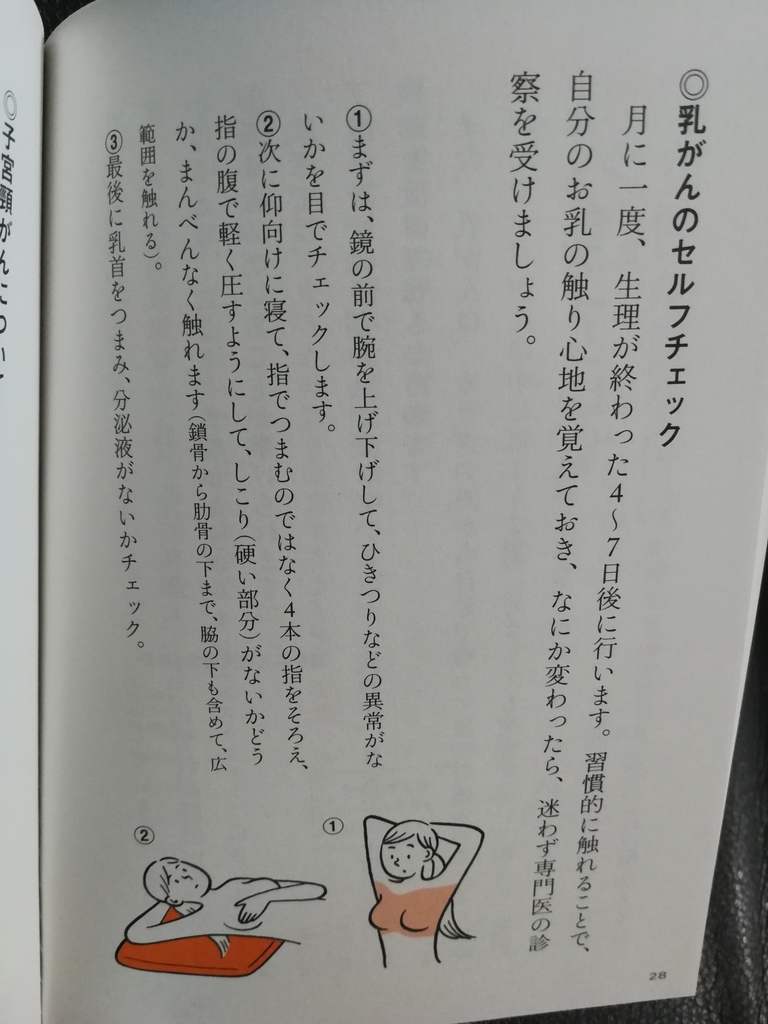 ◎乳がんのセルフチェック
月に一度、生理が終わった4〜7日後に行います。習慣的に触れることで、
自分のお乳の触り心地を覚えておき、なにか変わったら、迷わず専門医の診
察を受けましょう。
①まずは、鏡の前で腕を上げ下げして、ひきつりなどの異常がな
いかを目でチェックします。
②次に仰向けに寝て、指でつまむのではなく4本の指をそろえ、
指の腹で軽く圧すようにして、しこり(硬い部分)がないかどう
か、まんべんなく触れます(鎖骨から肋骨の下まで、脇の下も含めて、広
範囲を触れる)。
③最後に乳首をつまみ、分泌液がないかチェック。
①
②
28
◎子宮頸がんについて